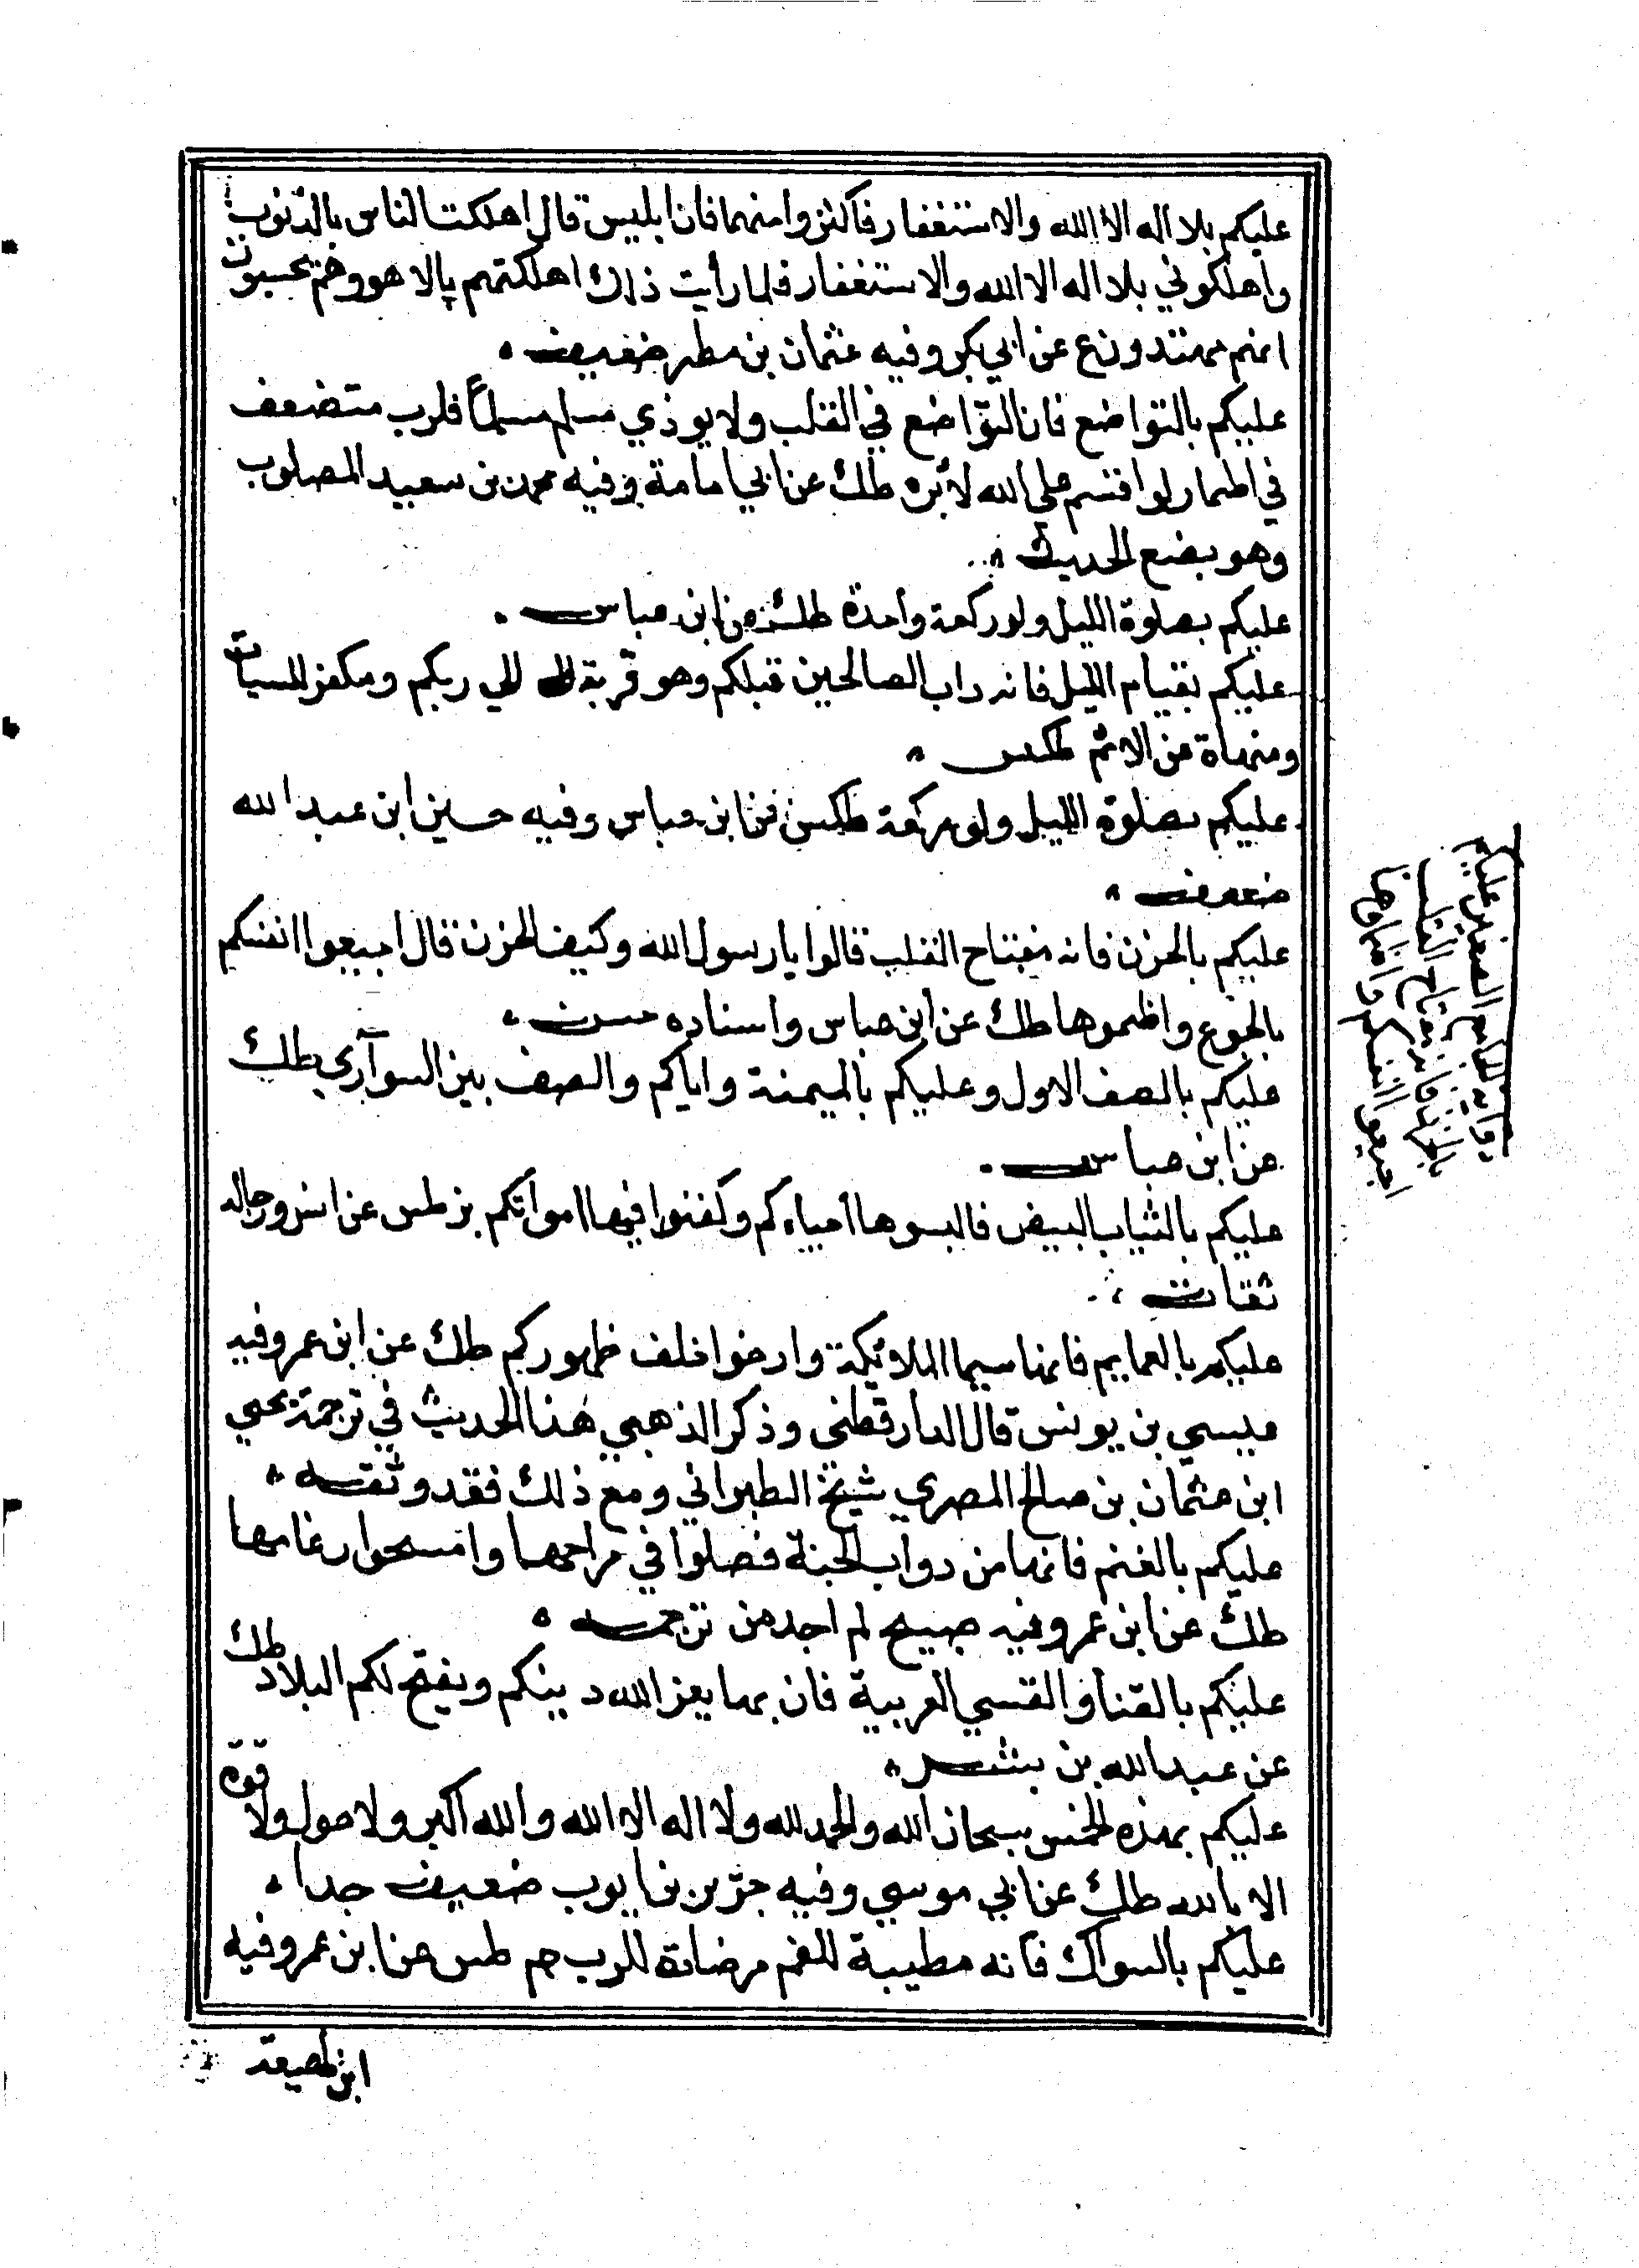 عليكم بلا اله الا الله والاستغفار فاكثروا منهما فان ابليس قال اهلكت الناس بالذنوب
واهلكوني بلا اله الا الله والاستغفار فلما رأيت ذلك اهلكتهم بالاهوو هم يحسبون
انهم مهتدون ع عن ابي بكر وفيه عثمان بن مطر ضعيف
عليكم بالتواضع فان التواضع في القلب ولا يوذي مسلم مسلماً فلرب متضعف
في اطمار لو اقسم على الله لأبره طك عن ابي امامة وفيه محمد بن سعيد المصلوب
وهو يضع الحديث
عليكم بصلوة الليل ولو ركعة واحدة طك عن ابن عباس
عليكم بقيام الليل فانه داب الصالحين قبلكم وهو قربة الي ربكم ومكفر للسيات
ومنهاة عن الاثم طكس
عليكم بصلوة الليل ولو ركعة طكس عن ابن عباس وفيه حسين ابن عبد الله
ضعيف
عليكم بالحزن فانه مفتاح القلب قالوا يا رسول الله وكيف الحزن قال اجيعوا انفسكم
بالجوع واظموها طك عن ابن عباس واسناده حسن
عليكم بالصف الاول وعليكم بالميمنة واياكم والصف بين السواري طك
عن ابن عباس
عليكم بالثياب البيض فالبسوها احياءكم وكفنوا فيها امواتكم بز طس عن انس ورجاله
ثقات
عليكم بالعمايم فانها سيما الملائكة وارخوا خلف ظهوركم طك عن ابن عمر وفيه
عيسي بن يونس قال الدارقطنى وذكر الذهبي هذا الحديث في ترجمة يحيي
ابن عثمان بن صالح المصري شيخ الطبراني ومع ذلك فقد وثقه
عليكم بالغنم فانها من دواب الجنة فصلوا في مراحها وامسحوا رغامها
طك عن ابن عمر وفيه صبيح لم اجد من ترجمه
عليكم بالقنا والقسي العربية فان بها يعز الله دينكم ويفتح لكم البلاد طك
عن عبد الله بن بشر
عليكم بهذه الخمس سبحان الله والحمد لله ولا اله الا الله والله اكبر ولا حول ولا قوة
الا بالله طك عن ابي موسي وفيه جرير بن ايوب ضعيف جدا
عليكم بالسواك فانه مطيبة للفم مرضاة للرب حم طس عن ابن عمر وفيه
ابن لهيعة
عليكم
بالحزن فانه مفتاح القلب
اجيعوا انفسكم واظمأوها